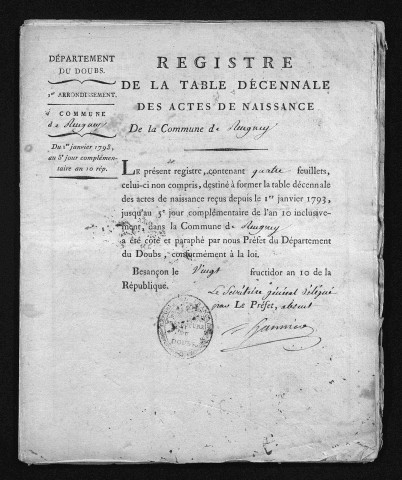 DÉPARTEMENT
DU DOUBS.
1er ARRONDISSEMENT.
COMMUNE
de Rugney
Du 1er janvier 1793,
au 5e jour complémen-
taire an 10 rép.
REGISTRE
DE LA TABLE DÉCENNALE
DES ACTES DE NAISSANCE
De la Commune de Rugney
LE présent registre, contenant quatre feuillets,
celui-ci non compris, destiné à former la table décennale
des actes de naissance reçus depuis le 1er janvier 1793,
jusqu'au 5e jour complémentaire de l'an 10 inclusive-
ment, dans la Commune de Rugney
a été coté et paraphé par nous Préfet du Département
du Doubs, conformément à la loi.
Besançon le Vingt fructidor an 10 de la
République.
Le Secrétaire général délégué
par Le Préfet, absent
DOUBS